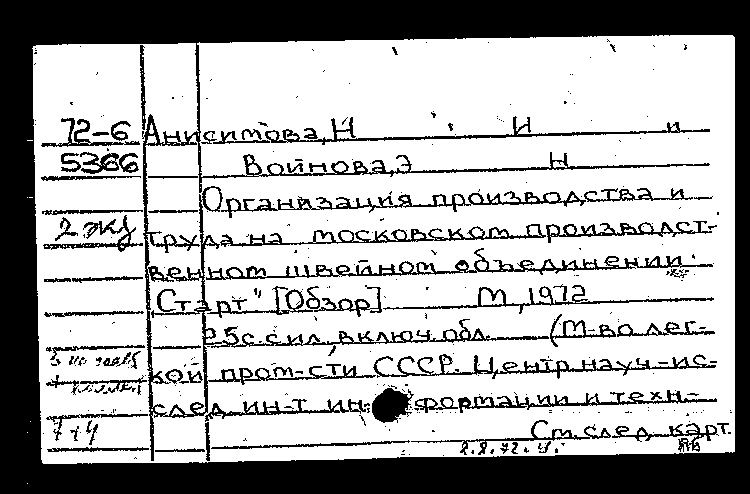 72-6 Анисимова, Н И и
5366 Войнова, Э Н
Организация производства и
2 экз труда на московском производст-
венном швейном объединении
"Старт" [Обзор] М, 1972
25с. с ил, включ. обл. (М-во лег-
кой пром-сти СССР. Центр. науч-ис-
след ин-т информации и техн.-
7+4 См. след. карт.
8.8.72.